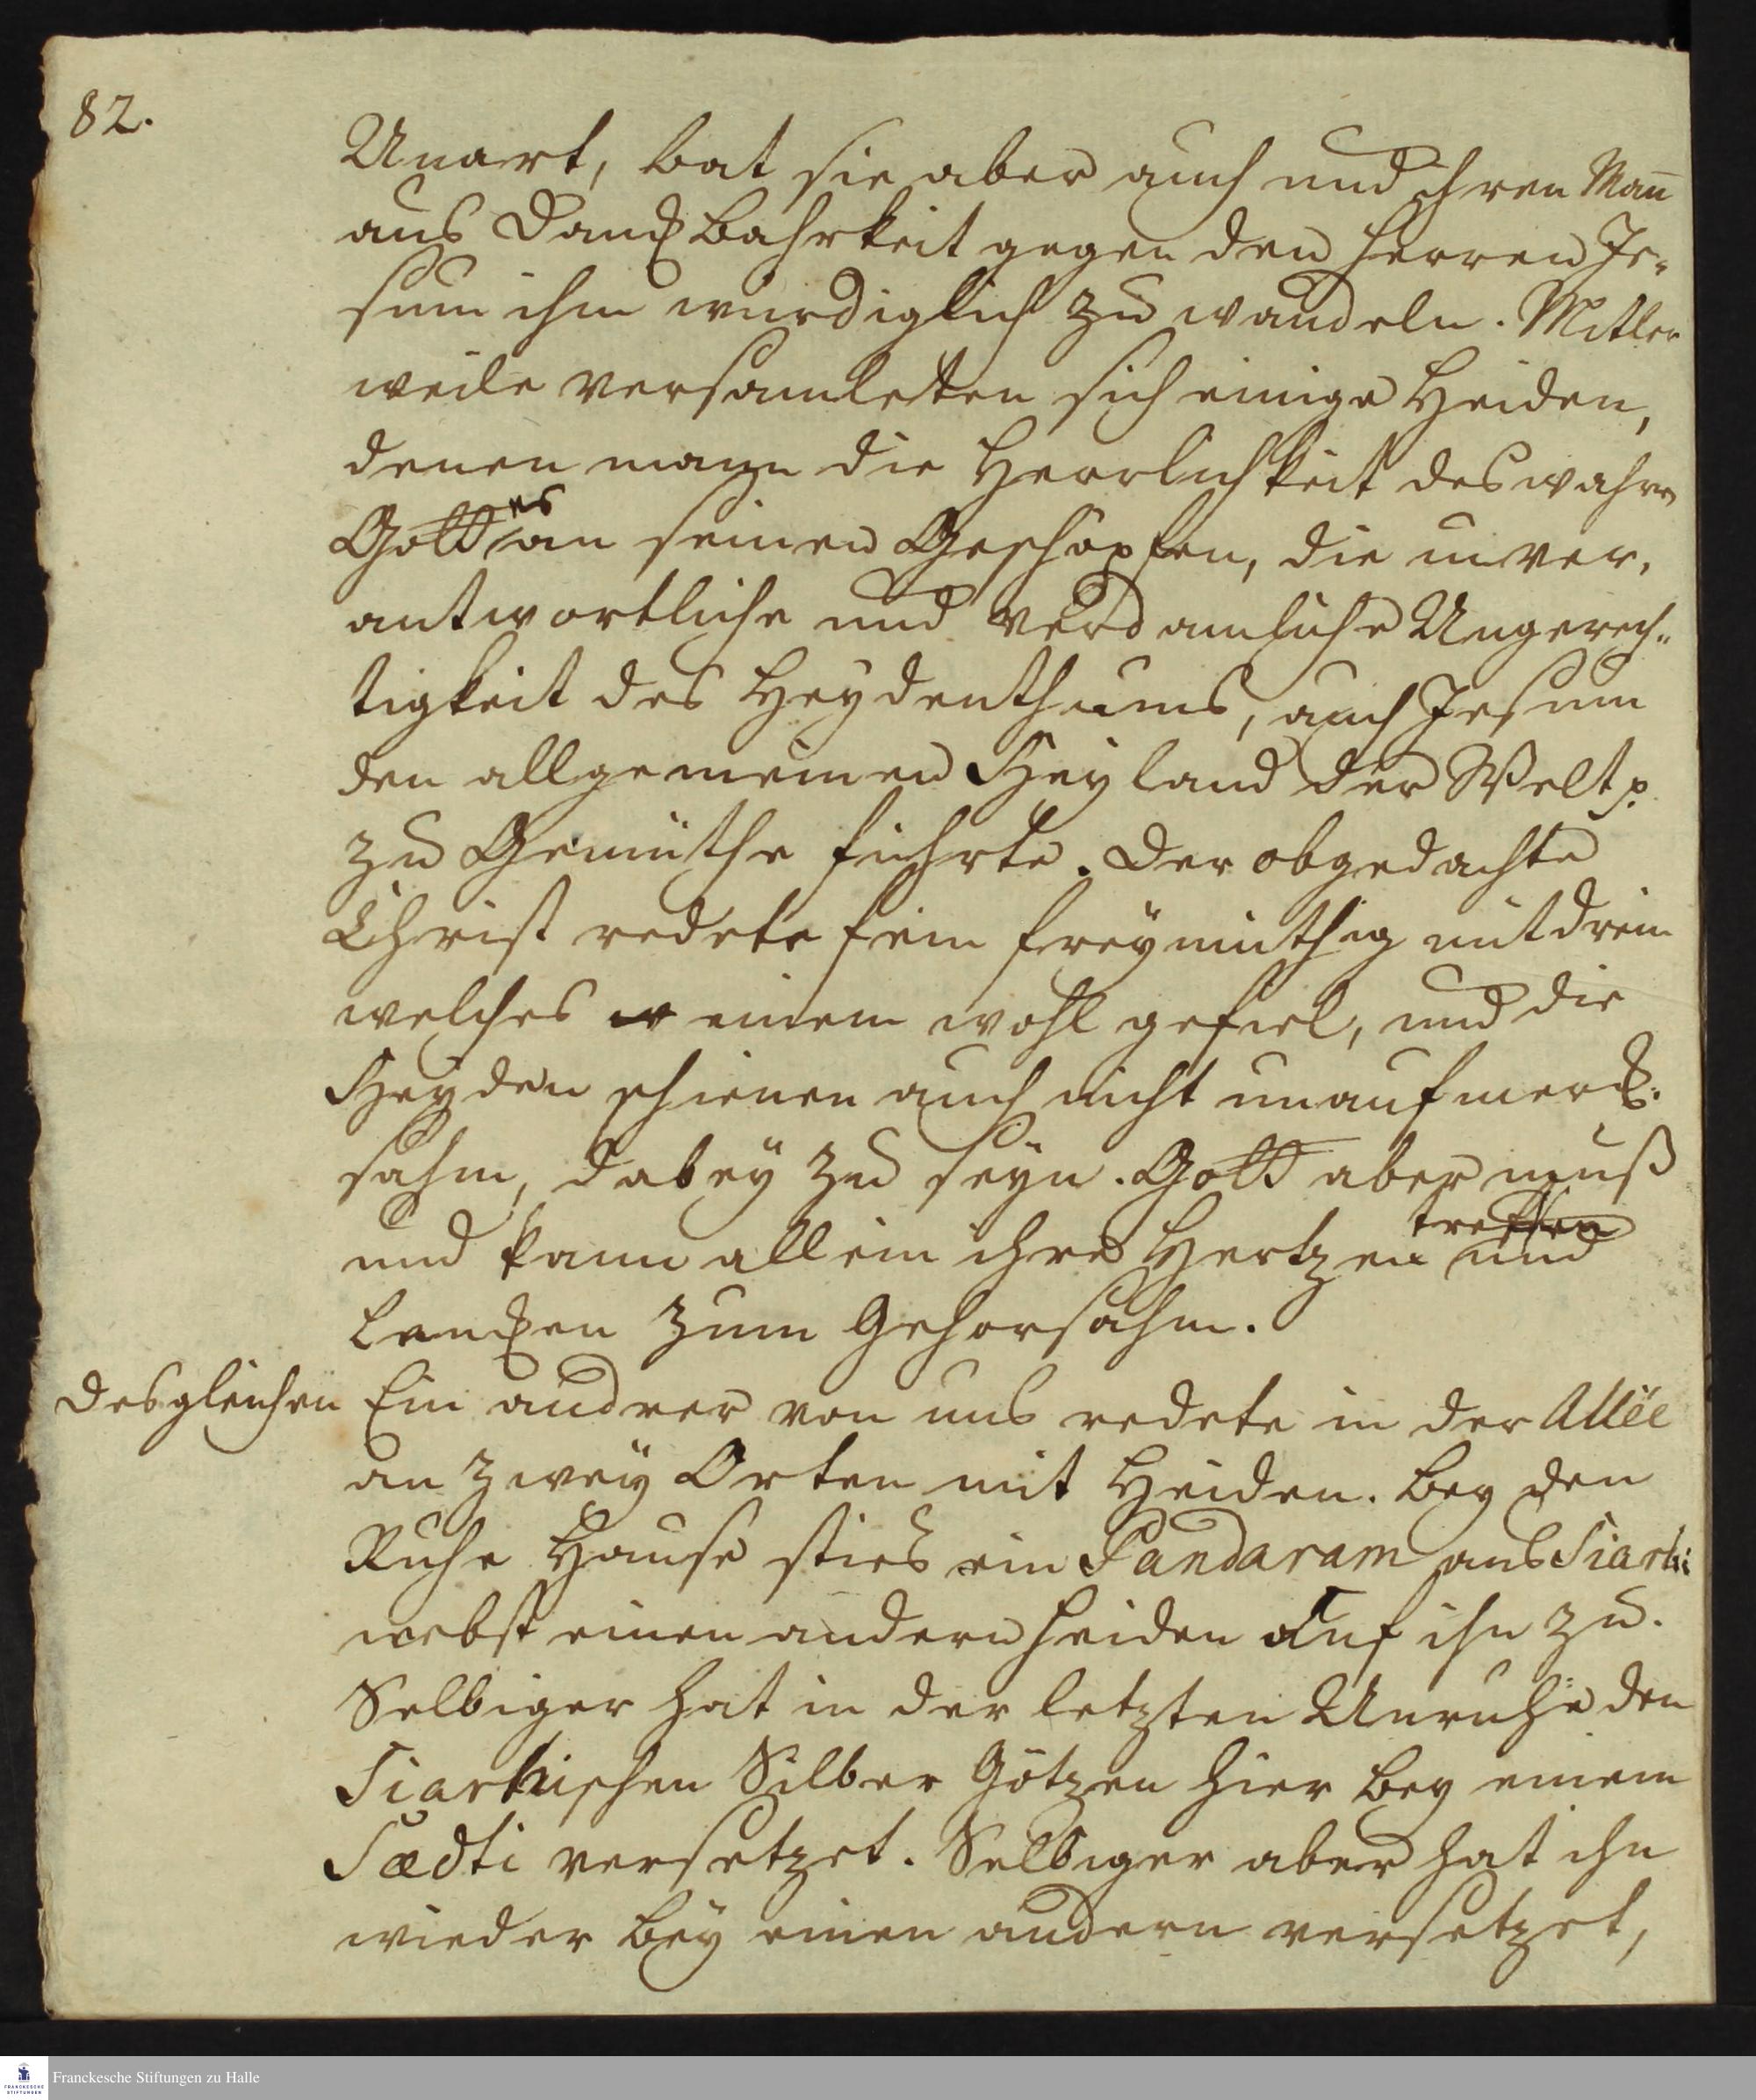 82.
Unart, bat sie aber auch und ihren Mañ
aus Danckbahrkeit gegen den Herren Je-
sum ihm wurdiglich zu wandeln. Mitler
weile versamleten sich einige Heiden,
denen man die Herrlichkeit des wahren
Gottes an seinen Geschöpfen, die unver-
antwortliche und verdamliche Ungerech-
tigkeit des Heydenthums, auch Jesum
den allgemeinen Heyland der Welt p.
zu Gemüthe führte. Der obgedachte
Christ redete fein freÿmüthig mit drein
welches einem wohl gefiel, und die
Heyden schienen auch nicht unaufmerck-
sahm, dabeÿ zu seyn. Gott aber muß
und kann allein ihre Hertzen treffen und
lencken zum Gehorsahm.
Desgleichen
Ein andrer von uns redete in der Allée
an zweÿ Orten mit Heiden. Bey den
Ruhe Hause sties ein Pandaram aus Tiarki
nebst einen andern Heiden auf ihn zu.
Selbiger hat in der letzten Unruhe den
Tiarkischen Silber Götzen hier bey einem
Sædti versetzet. Selbiger aber hat ihn
wieder beÿ einen andern versetzet,
Franckesche Stiftungen zu Halle
FRANCKESCHE
STIFTUNGEN